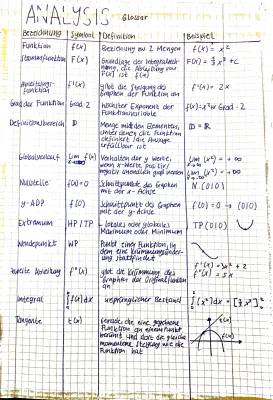 ANALYSIS Glossar
Bezeichnung Symbol Definition Beispiel
Funktion f(x) Beziehung zu 2 Mengen f(x) = x²
Stammfunktion F(x) Grundlage der Integralrech-
nung, die Ableitung von
F(x) ist f(x)
F(x) = ⅓x³ + C
Ableitungs-
funktion
f'(x) gibt die Steigung des
Graphen der Funktion an
f'(x) = 2x
Grad der Funktion Grad 2 Höchster Exponent der
Funktionsvariable
f(x)=x² Grad 2
Definitionsbereich D Menge mit den Elementen,
unter denen die
definiert
erfüllbar ist
D = ℝ
Globalverlauf lim f(x) Verhalten der y Werte,
wenn x-Werte positiv/
negativ unendlich groß werden
lim (x²) = +∞
lim (x²) = +∞
Nullstelle f(x)=0 Schnittpunkte des Graphen
mit der x-Achse
N(0|0)
y-ADP f(0) Schnittpunkt des Graphen
mit der y-Achse
f(0)=0 → (0|0)
Extremum HP/TP lokales oder globales
Maximum oder Minimum
TP(0|0)
Wendepunkt WP Punkt einer Funktion, in
dem eine Krümmungsänder-
ung stattfindet
zweite Ableitung f''(x) gibt die Krümmung des
Graphen der
an
Integral ∫ f(x)dx ursprünglicher Bestand
Tangente t(x) Gerade, die eine gegebene
Funktion an einem Punkt
berührt und dort die gleiche
momentane Steigung wie die
Funktion hat
t(x)
f(x)